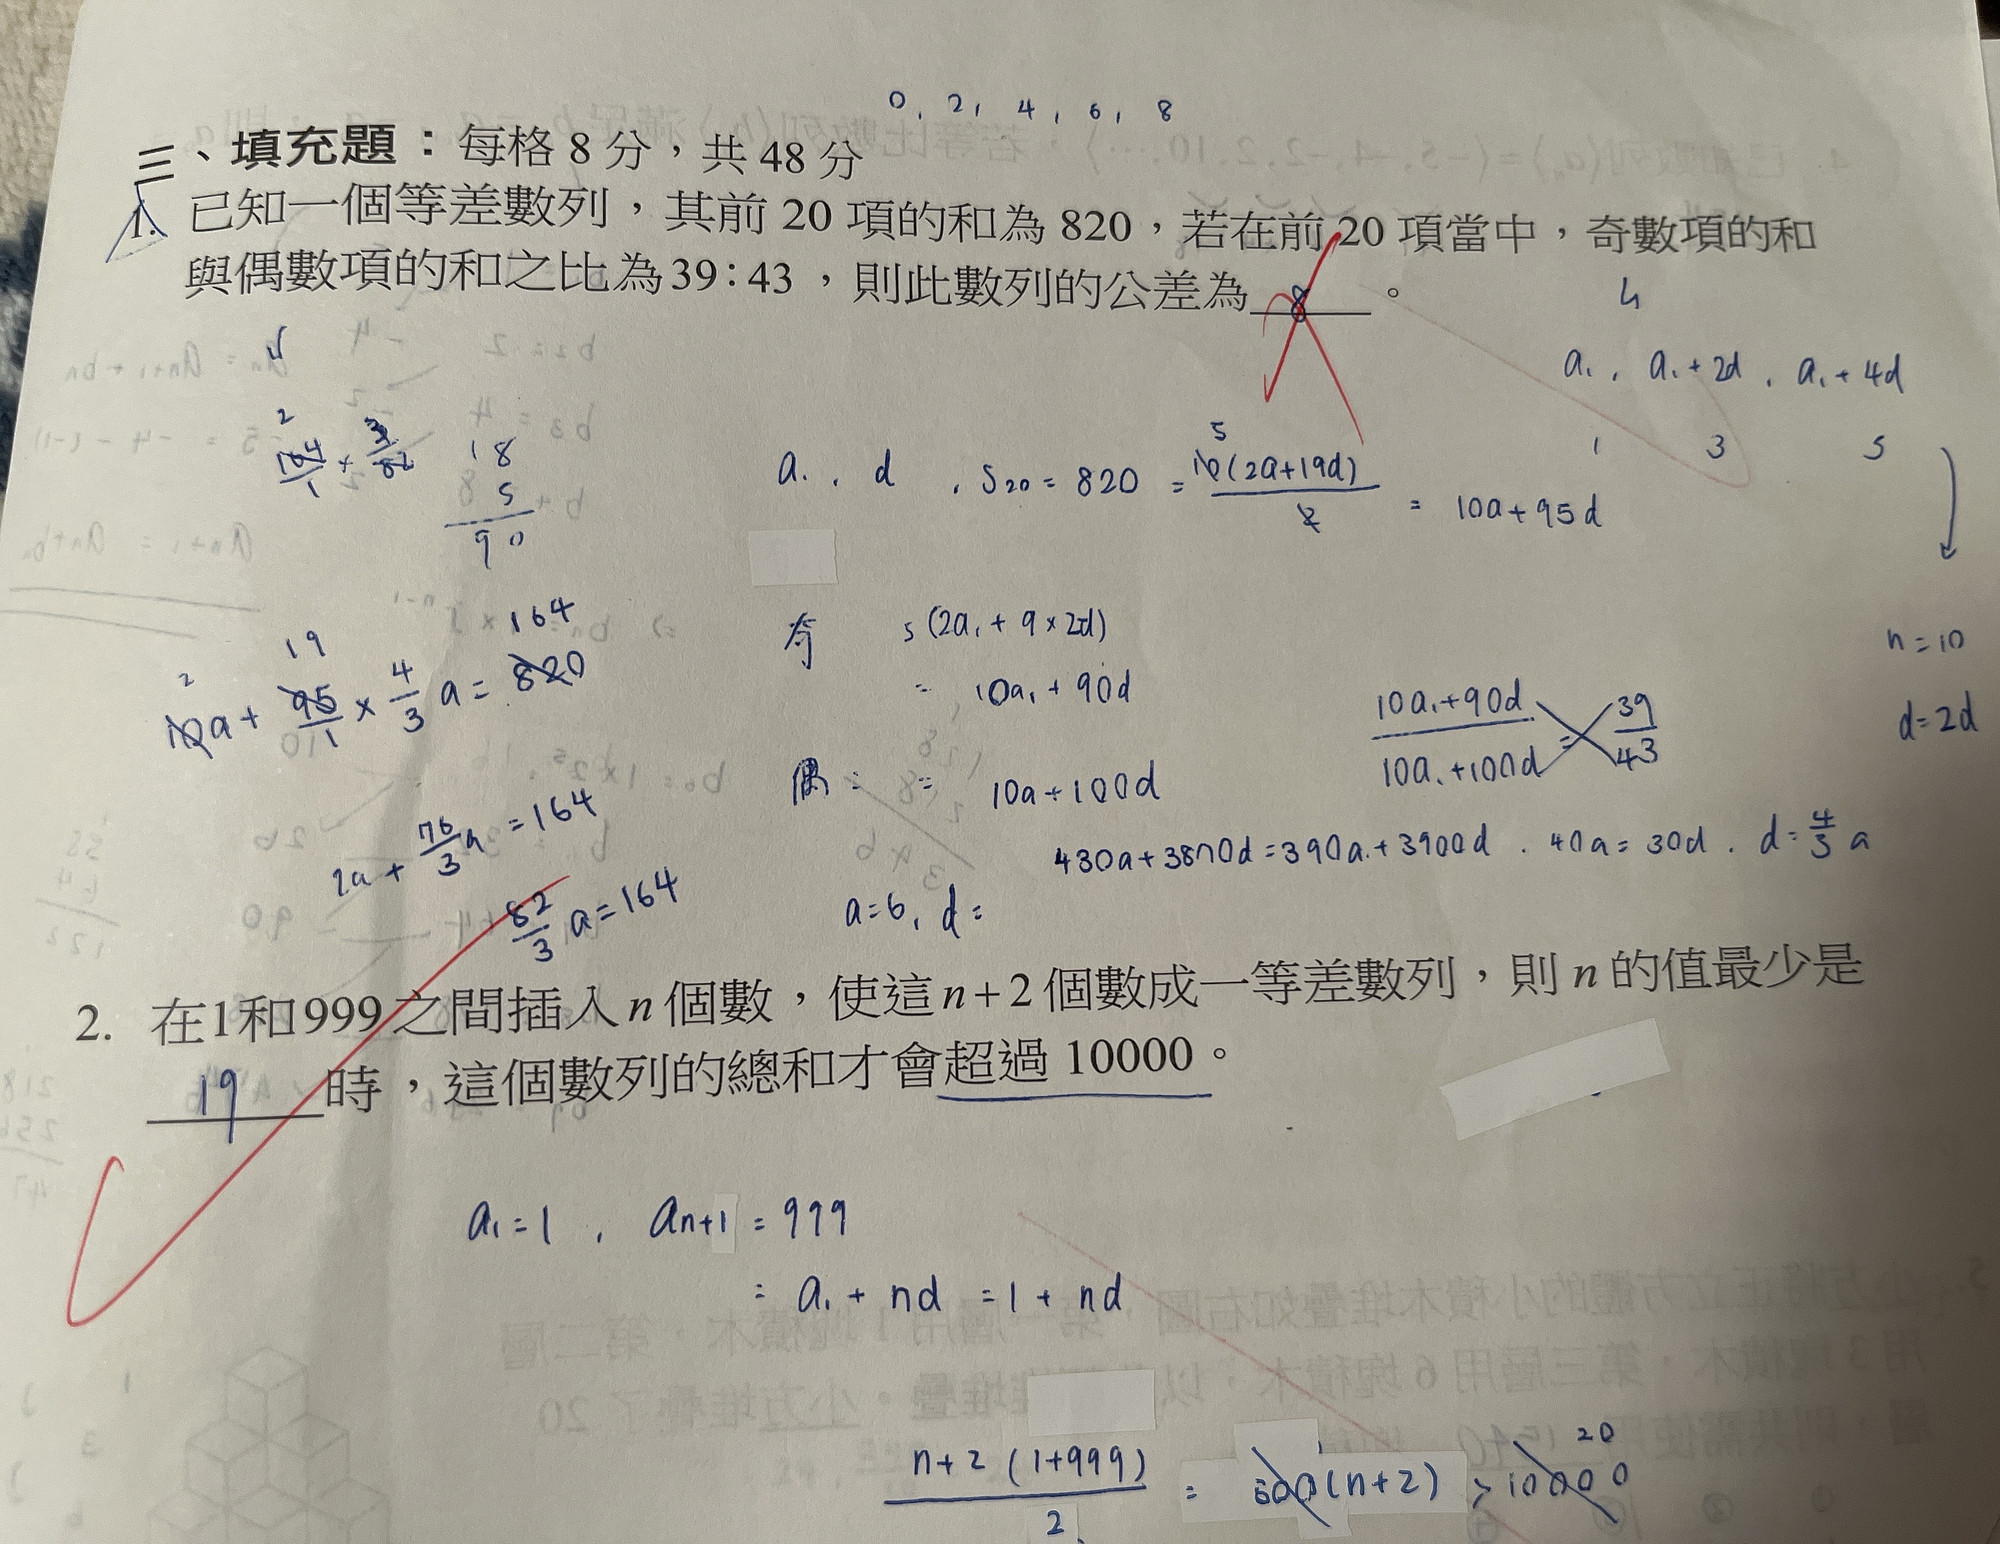 0, 2, 4, 6, 8
三、填充題：每格 8 分，共 48 分
1. 已知一個等差數列，其前 20 項的和為 820，若在前 20 項當中，奇數項的和
與偶數項的和之比為 39：43，則此數列的公差為 8 。
a₁, a₁+2d, a₁+4d
1 3 5
n=10
d=2d
2
164/1 × 3/82
18
5
90
a₁, d, S₂₀ = 820 = 10(2a+19d)/2 = 10a+95d
5
奇 5(2a₁+9×2d)
= 10a₁+90d
偶： = 10a+100d
10a₁+90d/10a₁+100d = 39/43
430a+3870d=390a+3900d . 40a=30d . d=4/3 a
a=6, d=
2 19 164
10a + 95/1 × 4/3 a = 820
2a + 76/3 a = 164
82/3 a = 164
2. 在1和999之間插入 n 個數，使這 n+2 個數成一等差數列，則 n 的值最少是
19 時，這個數列的總和才會超過 10000。
a₁=1 , an+1 = 999
= a₁ + nd = 1 + nd
n+2 (1+999)/2 = 500(n+2) > 10000
1 20